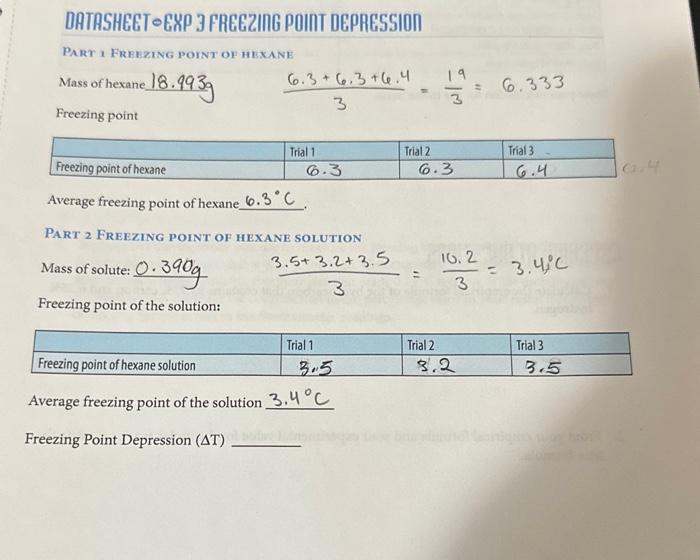 DATASHEET • EXP 3 FREEZING POINT DEPRESSION
PART 1 FREEZING POINT OF HEXANE
Mass of hexane 18.993g
6.3 + 6.3 + 6.4 / 3 = 19 / 3 = 6.333
Freezing point
Trial 1 Trial 2 Trial 3
Freezing point of hexane 6.3 6.3 6.4
Average freezing point of hexane 6.3°C.
PART 2 FREEZING POINT OF HEXANE SOLUTION
Mass of solute: 0.390g
3.5 + 3.2 + 3.5 / 3 = 10.2 / 3 = 3.4°C
Freezing point of the solution:
Trial 1 Trial 2 Trial 3
Freezing point of hexane solution 3.5 3.2 3.5
Average freezing point of the solution 3.4°C
Freezing Point Depression (ΔT)